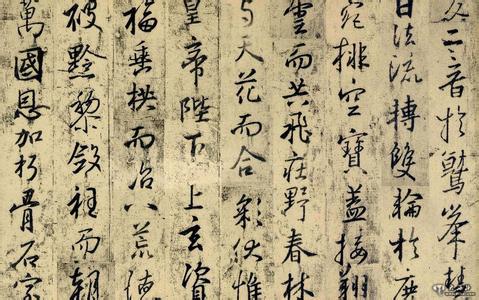 交二音於鷲峯慧
日法流轉雙輪於鹿
苑排空寶蓋接翔
雲而共飛莊野春林
與天花而合彩伏惟
皇帝陛下上玄資
福垂拱而治八荒德
被黔黎斂衽而朝
萬國恩加朽骨石室